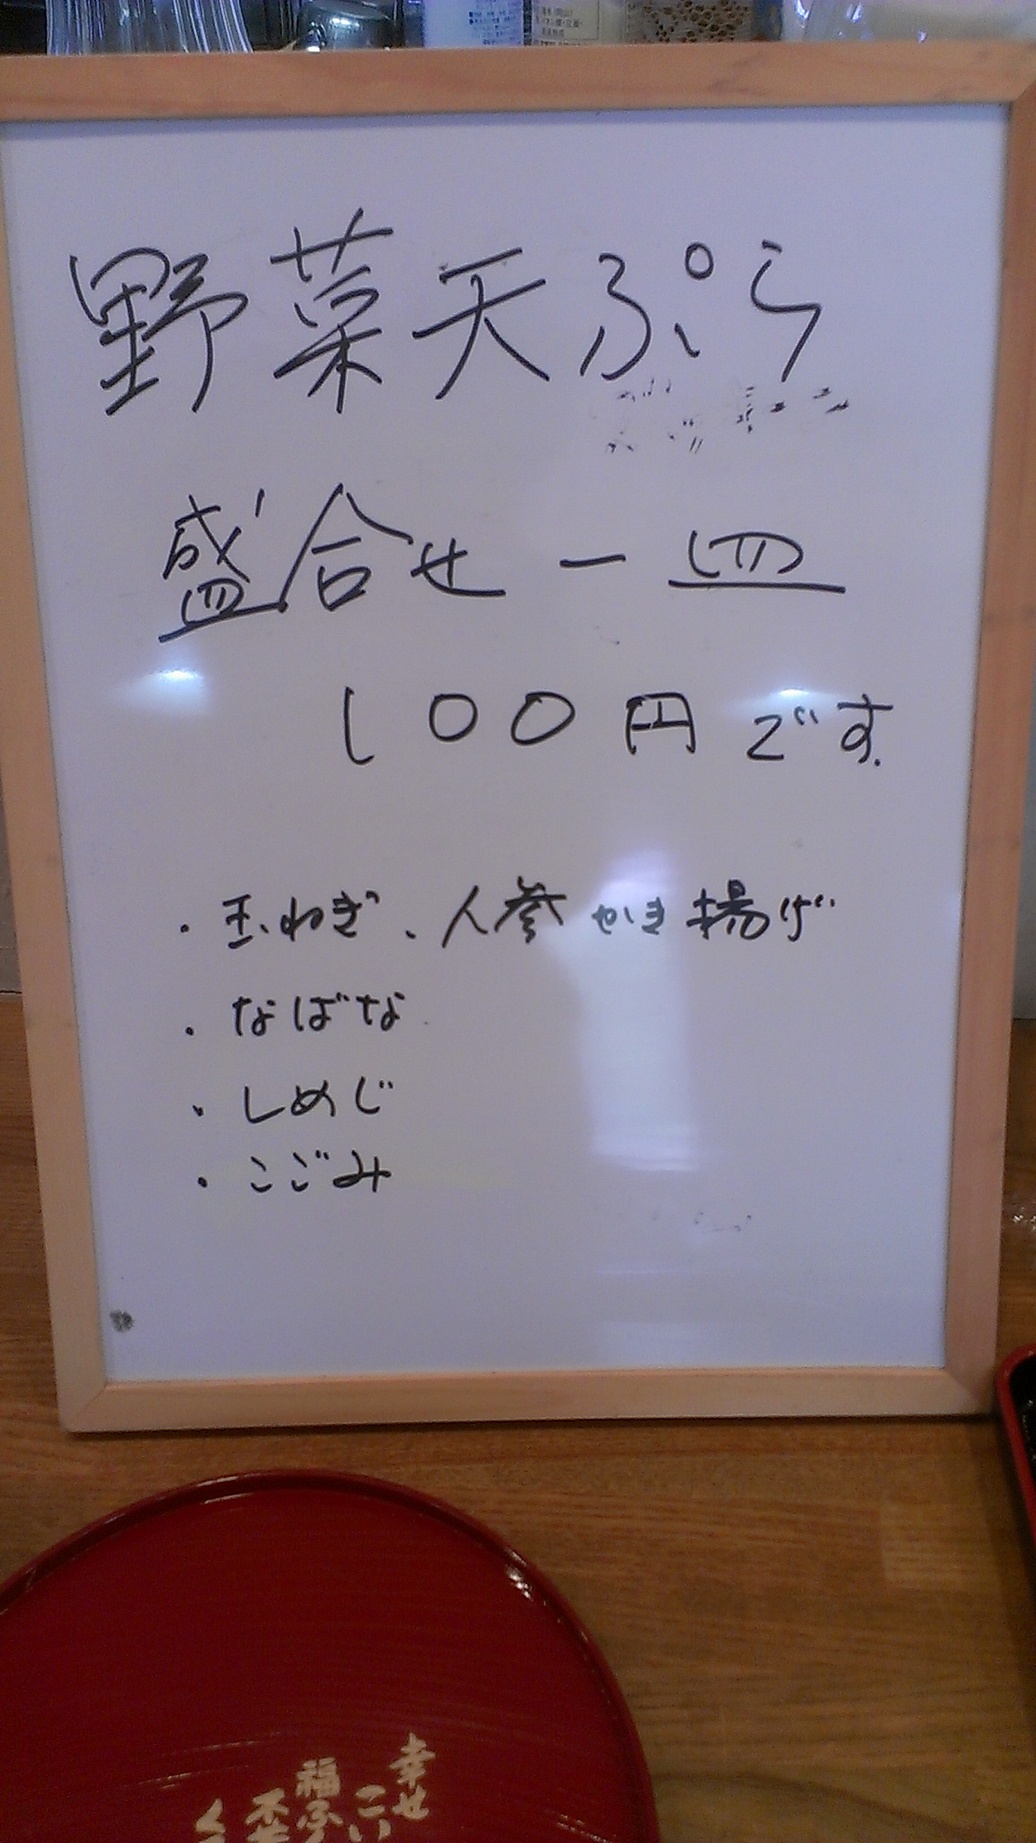 野菜天ぷら
盛合せ一皿
100円です.
・玉ねぎ、人参かき揚げ
・なばな
・しめじ
・こごみ
幸せ
こい
福ふく